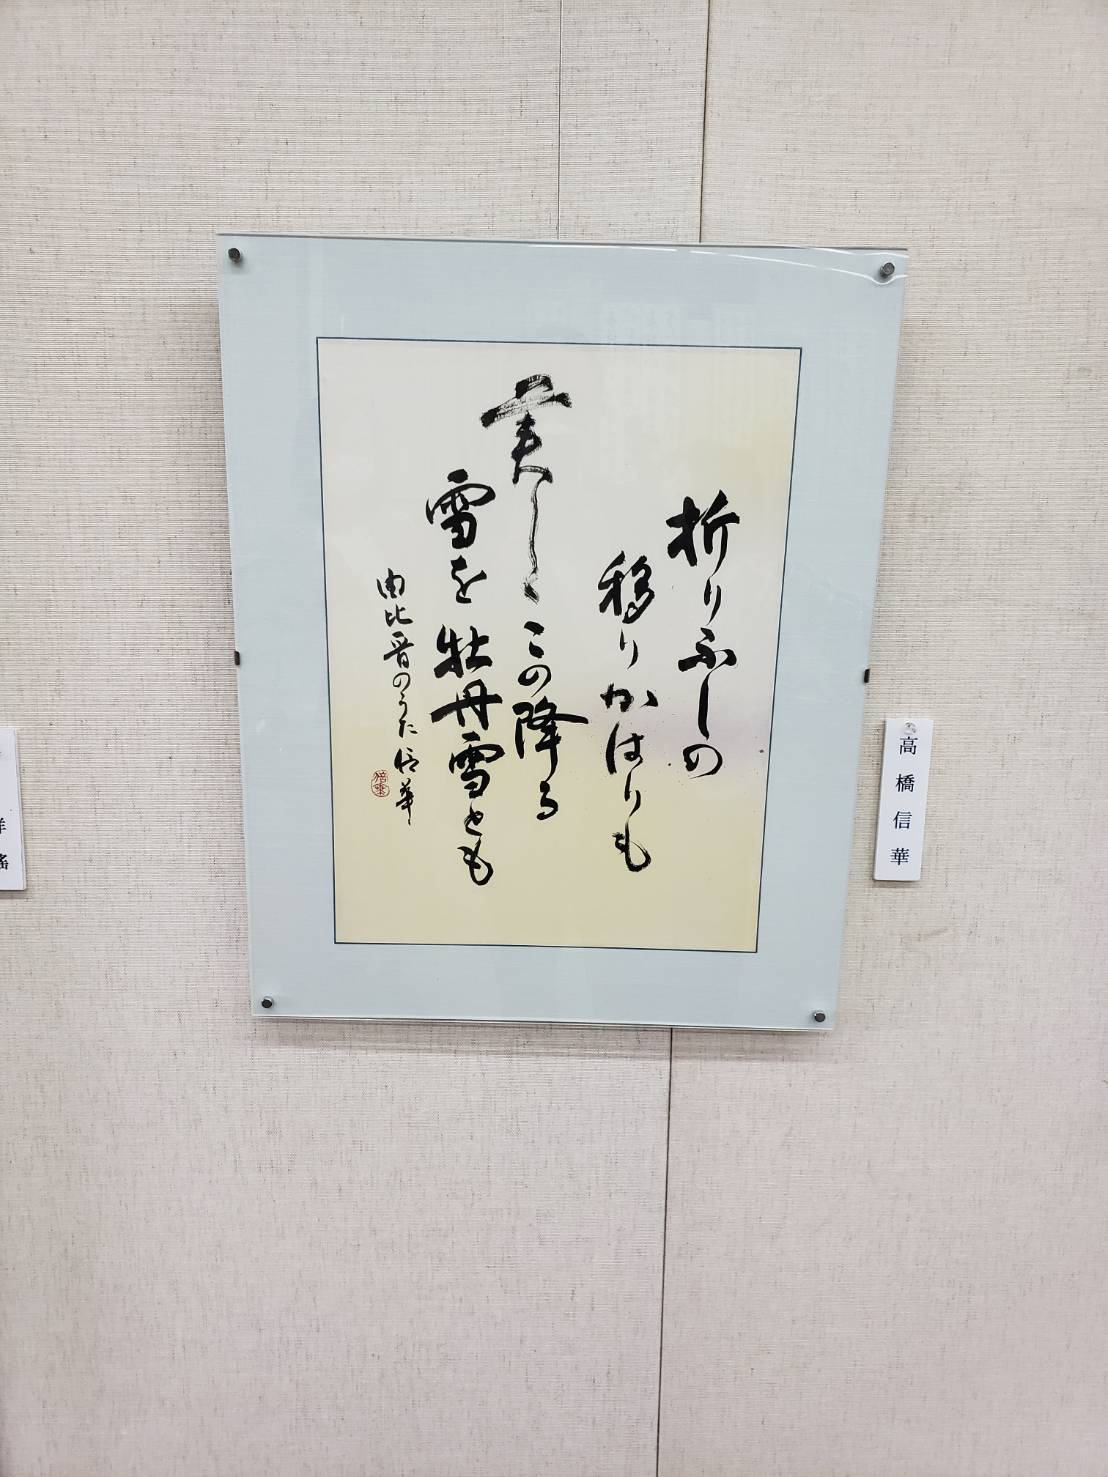 折りふしの
移りかはりも
美しくこの降る
雪を牡丹雪とも
由比晋のうた 信華
高橋信華